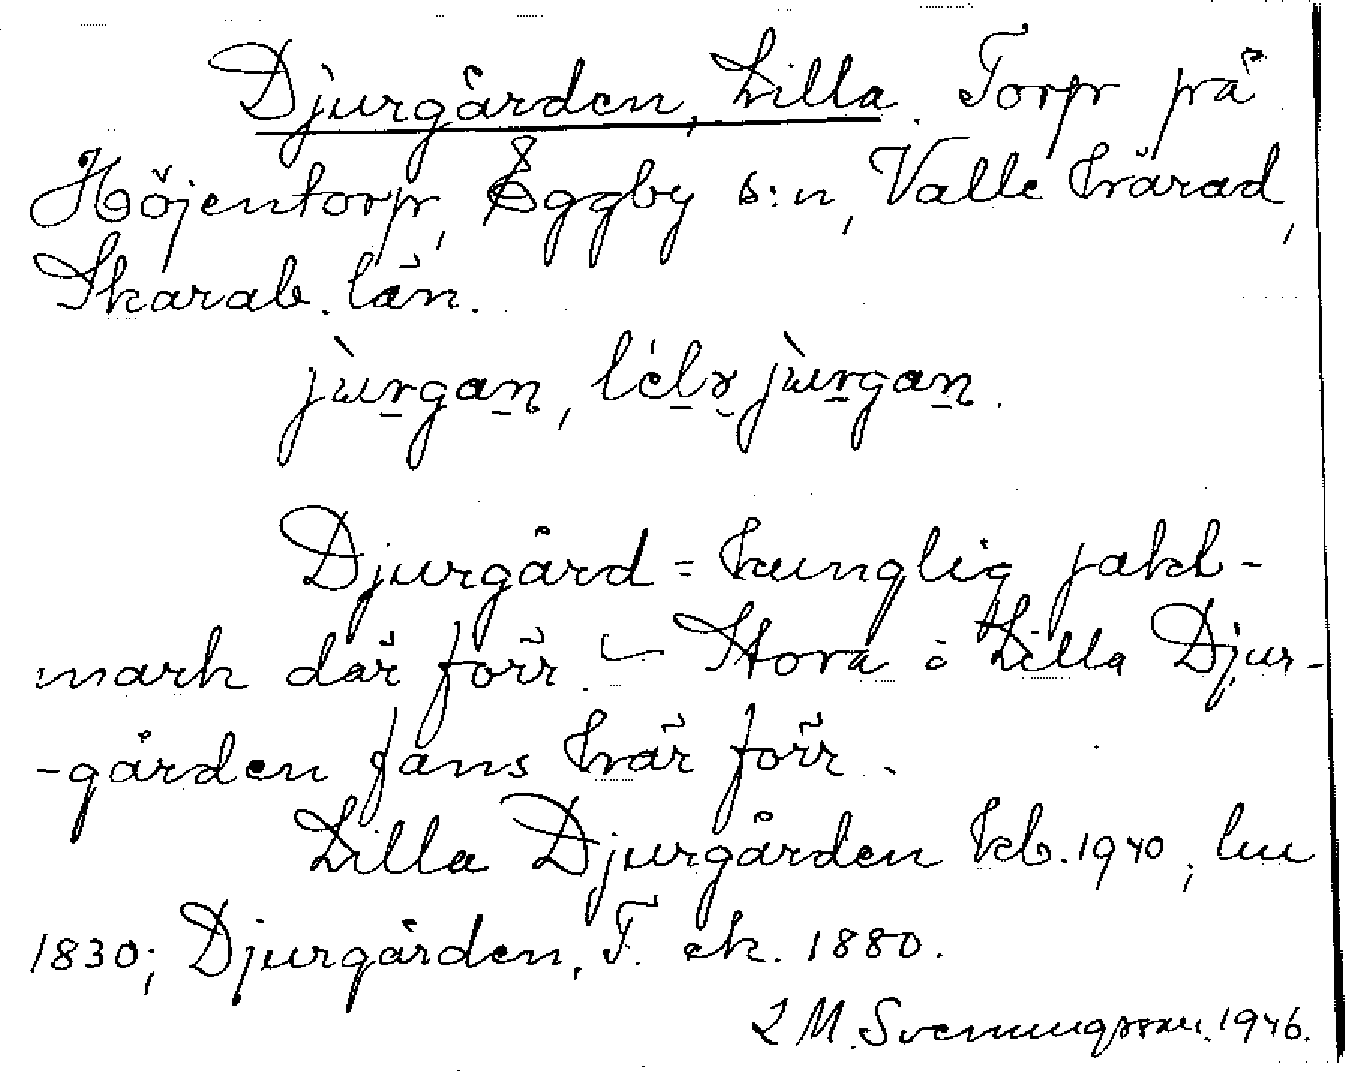 Djurgården, Lilla. Torp på
Höjentorp, Eggby s:n, Valle härad,
Skarab. län.
jùrgan, lɛ́lɤ jùrgan.
Djurgård = kunglig jakt-
mark där förr. – Stora o Lilla Djur-
-gården fans här förr.
Lilla Djurgården kb. 1940, hu
1830; Djurgården, T. ek. 1880.
L M. Svenungsson. 1946.